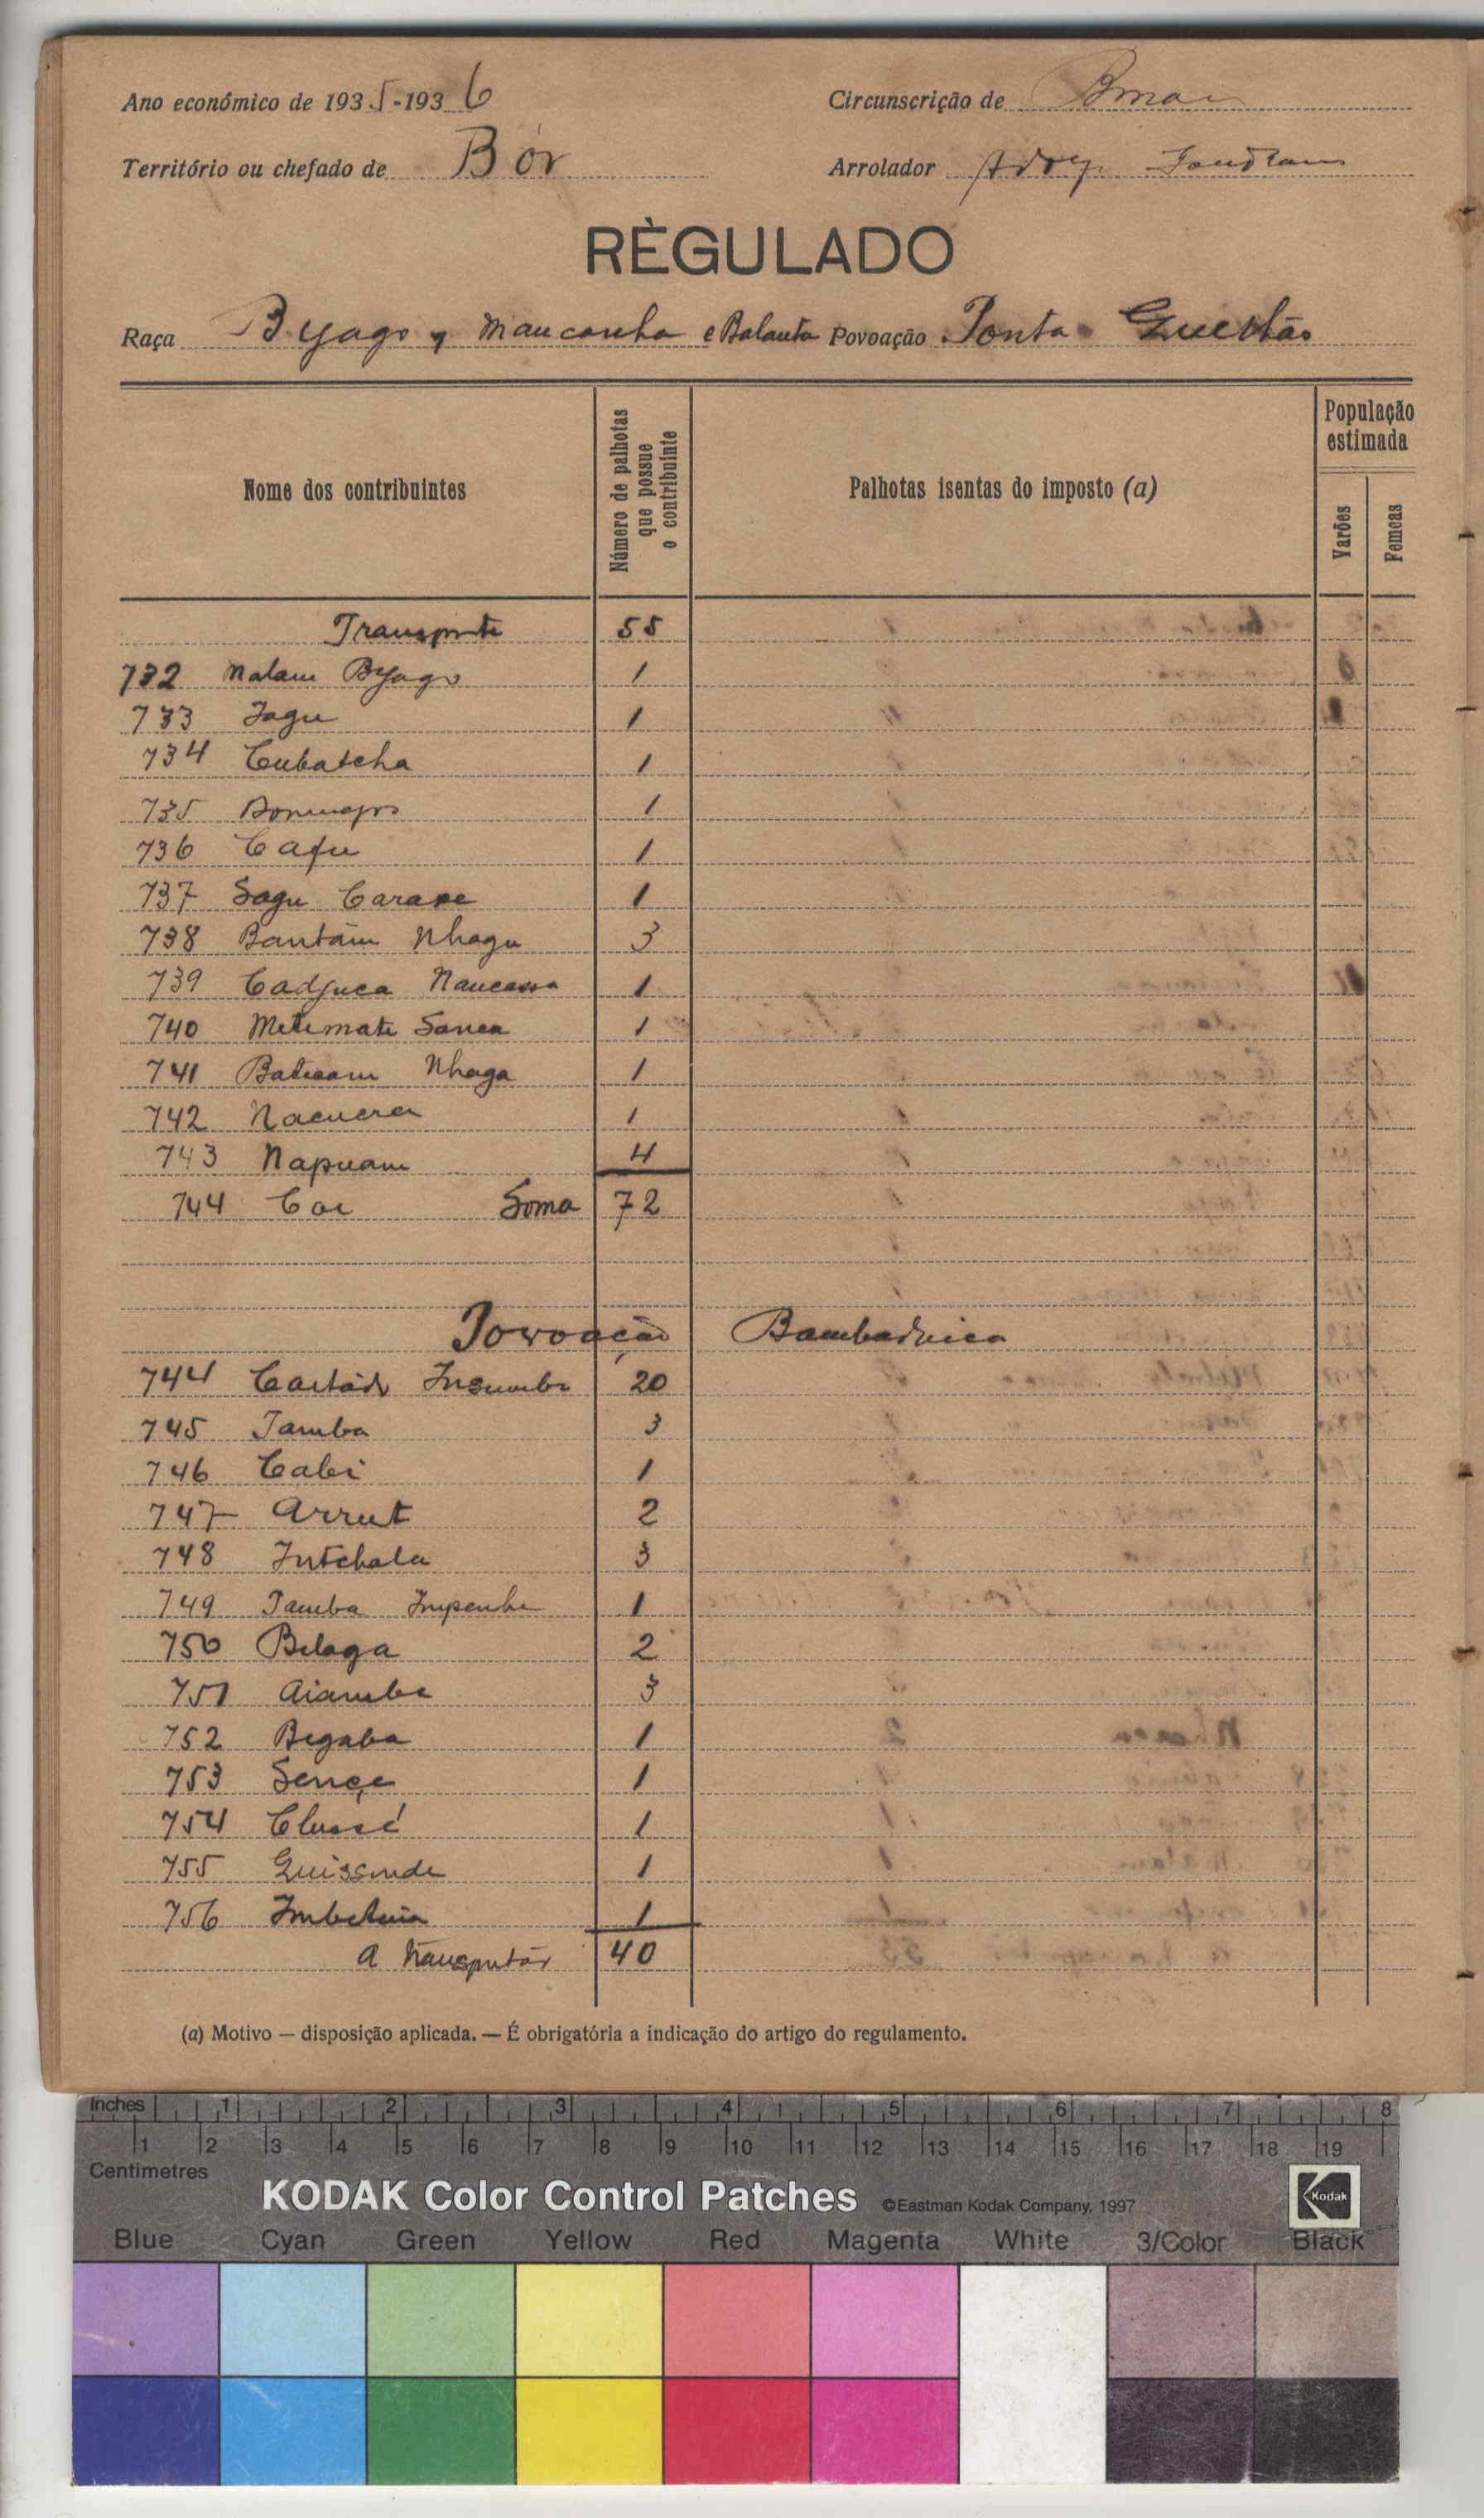 Ano económico de 1935-1936
Circunscrição de
Território ou chefado de Bór
Arrolador
RÈGULADO
Raça Byago y Mancanha e Balanta Povoação Ponta
Nome dos contribuintes
Número de palhotas que possue o contribuinte
Palhotas isentas do imposto (a)
População estimada
Varões
Femeas
Transporte 55
732 Malam Byago 1
733 Jagu 1
734 Cubatcha 1
735 1
736 Cafu 1
737 Sagu 1
738 Bantám Nhaga 3
739 Cadjuca Naucassa 1
740 Metimate Sanca 1
741 Baticam Nhaga 1
742 Nacuera 1
743 Napuam 4
744 Coi Soma 72
Povoação Bambadinca
744 20
745 Tamba 3
746 Cabi 1
747 Arrut 2
748 Intchala 3
749 Tamba Impenhe 1
750 Bilaga 2
751 Aiambe 3
752 Begaba 1
753 Sença 1
754 Clussé 1
755 Quissinde 1
756 1
A transportár 40
(a) Motivo — disposição aplicada. — É obrigatória a indicação do artigo do regulamento.
Inches 1 2 3 4 5 6 7 8
1 2 3 4 5 6 7 8 9 10 11 12 13 14 15 16 17 18 19
Centimetres
KODAK Color Control Patches ©Eastman Kodak Company, 1997 Kodak
Blue Cyan Green Yellow Red Magenta White 3/Color Black